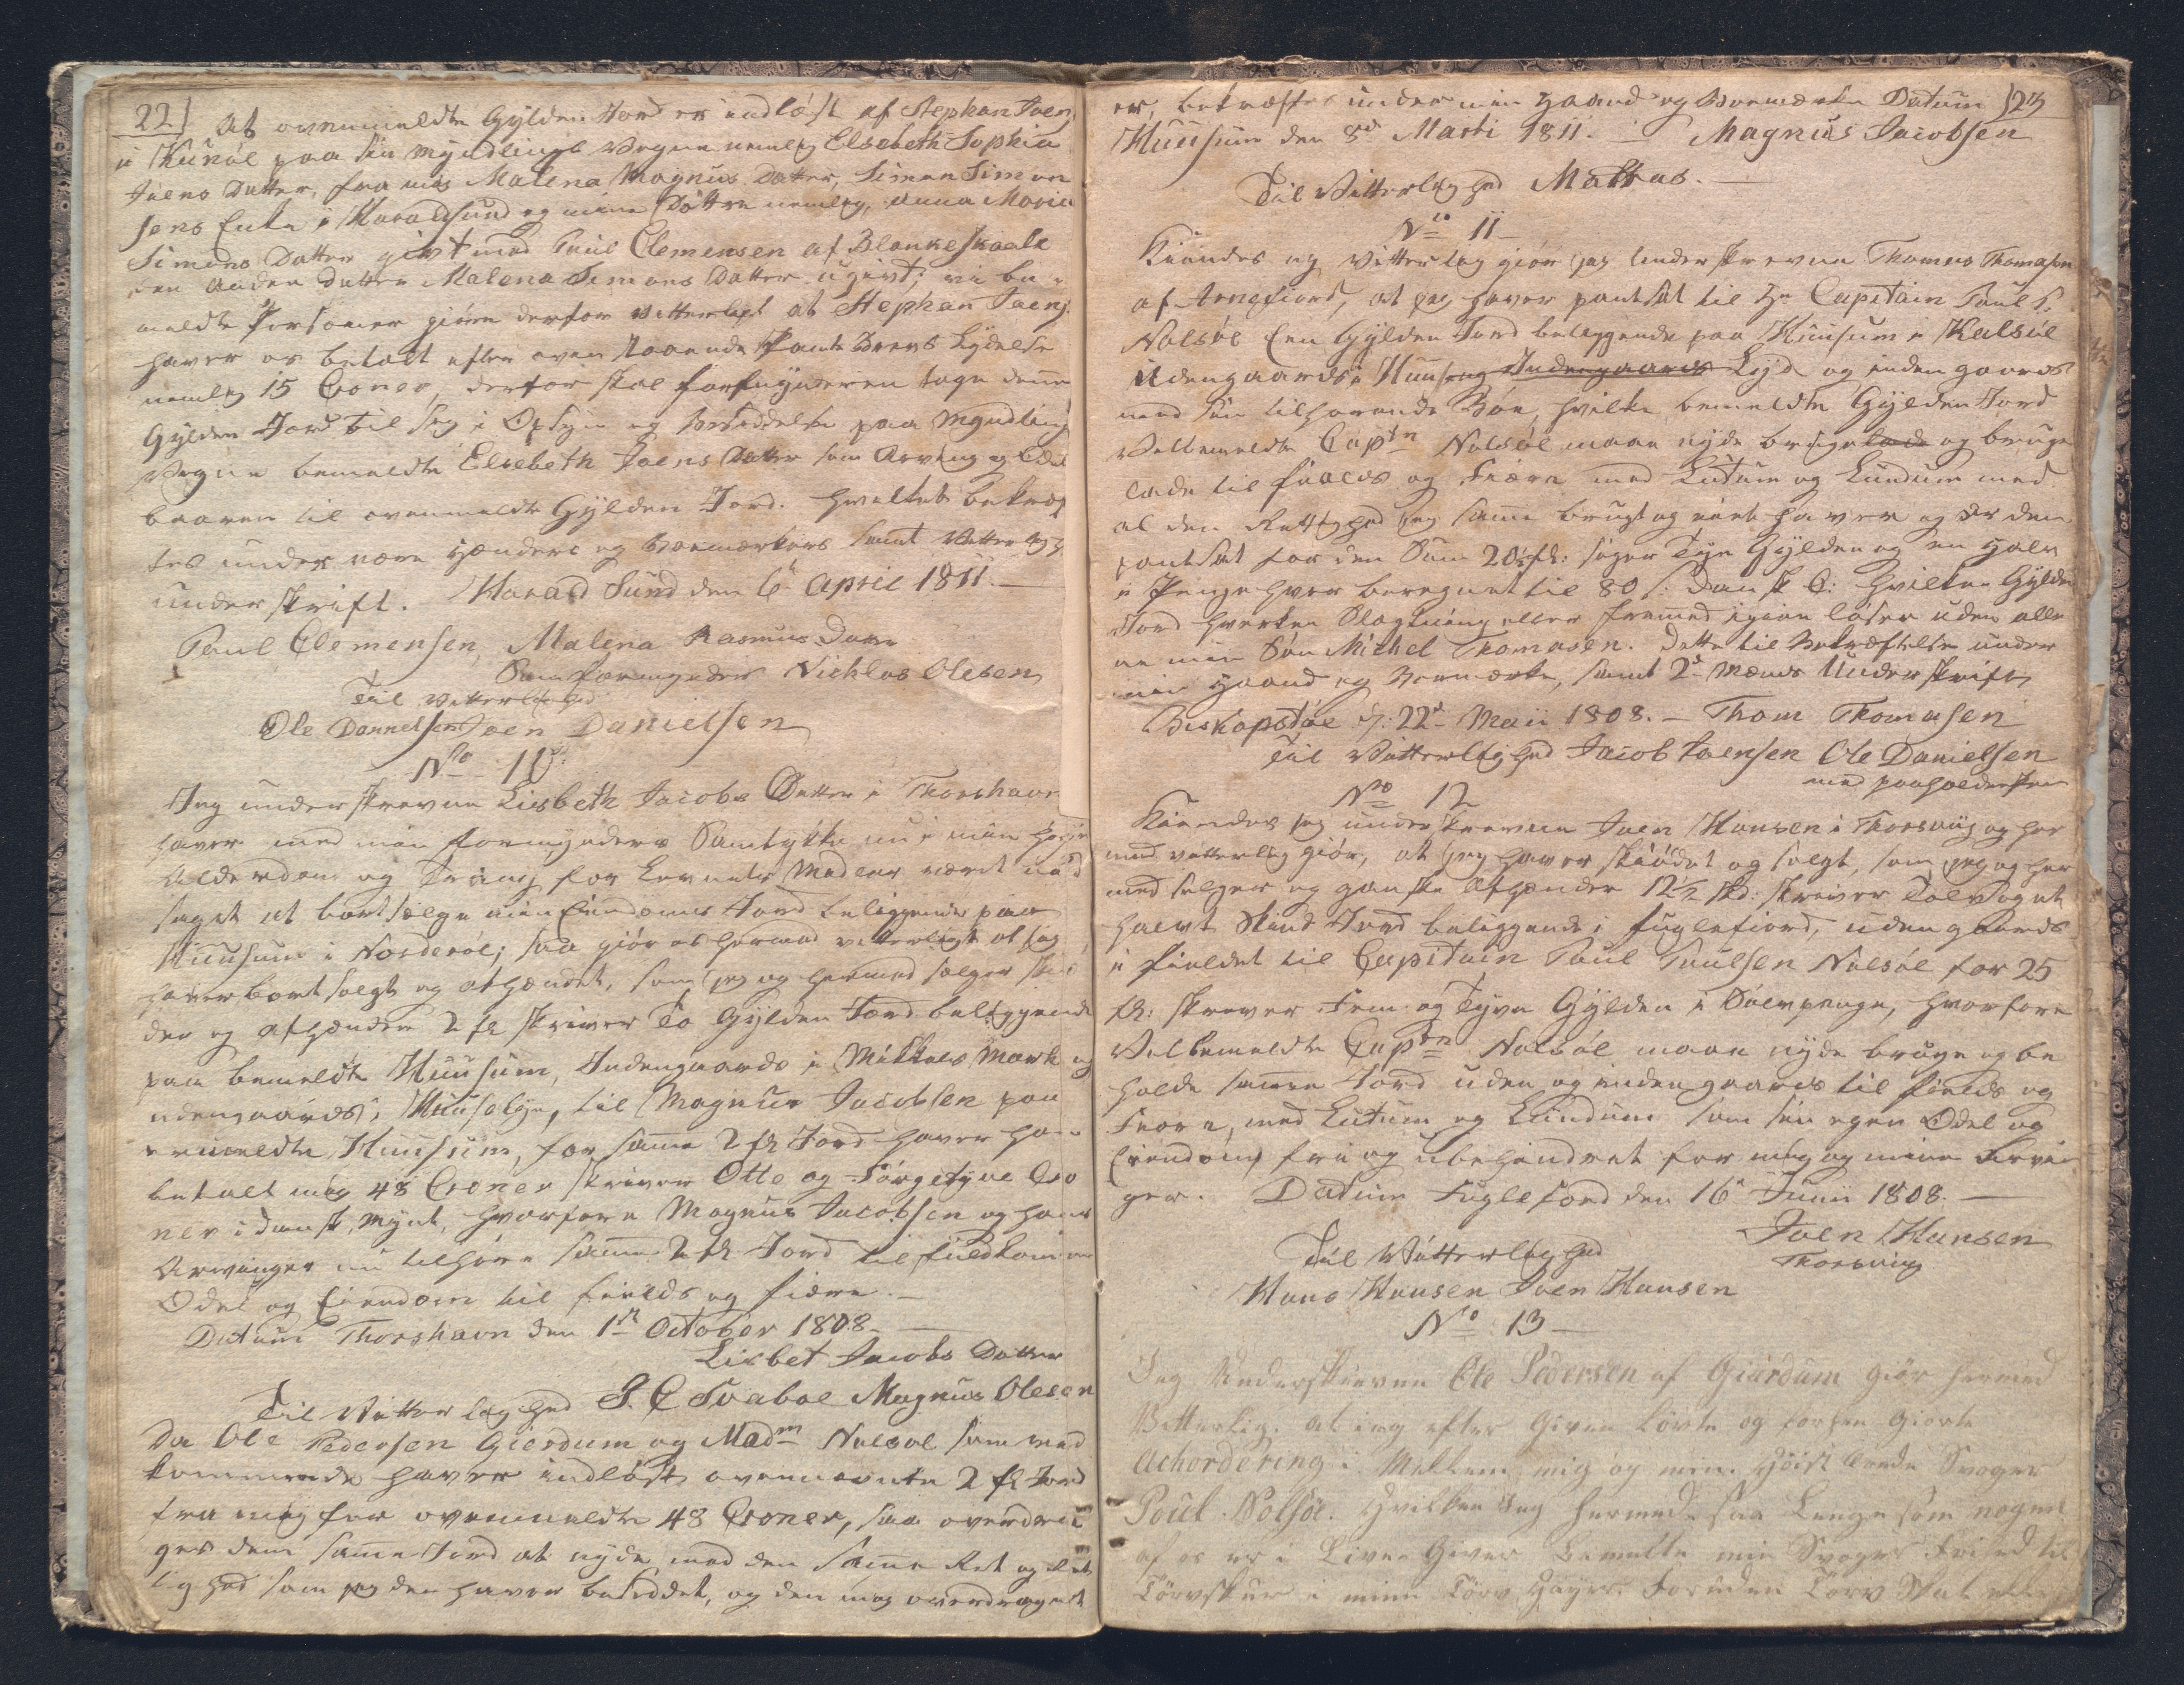 22
At ovenmeldte Gylden Jord er indløst af Stephan Joens
i Kunøl paa sin Myndlings Vegne nemlig Elsebeth Sophia
Joens Datter, fra mig Malena Magnus Datter, Simon Simon
sens Enke i Haraldsund og mine Døttre nemlig, Anna Maria
Simons Datter givt med Poul Clemensen af Blankeskaale
den anden Datter Malena Simons Datter ugivt; vi be-
meldte Personer giøre derfor vitterligt at Stephan Joens
haver os betalt efter oven staaende Pante Brevs Lydelse
nemlig 15 Croner, derfor skal formynderen tage denne
Gylden Jord til sig i Opsyn og besiddelse paa Myndlings
Vegne bemeldte Elsebeth Joens Datter som Arving og Odel
baaren til ovenmeldte Gylden Jord. hvilket bekræf
tes under vore Hænders og Boemærkers samt Vitterligh.
underskrift. Harald Sund den 6te April 1811.
Paul Clemensen, Malena Rasmus Datter
Som formynder Nichlas Olesen
Til Vitterlighed
Ole Dannelsen Joen Danielsen
No 10
Jeg underskrevne Lisbeth Jacobs Datter i Thorshavn
haver med min formynders Samtykke nu i min høie
Alderdom og Trang for Levnets Midler været nød
saget at bortsælge min Eiendoms Jord beliggende paa
Huusum i Norderøe; saa giør os hermed vitterligt at jeg
haver bortsolgt og afhændet, som jeg og hermed sælger skiø
der og afhænder 2 fl skriver To Gylden Jord beliggende
paa bemeldte Huusum, Indengaards i Mikkels Mark og
udengaards i Huusebye, til Magnus Jacobsen paa
bemeldte Huusum, for samme 2 fl Jord haver han
betalt mig 48 Croner skriver Otte og Førgetyve Cro
ner i dansk Mynt, hvorfore Magnus Jacobsen og hans
Arvinger nu tilhøre samme 2 fl. Jord til fuldkommen
Odel og Eiendom til fields og fiære.
Datum Thorshavn den 1st October 1808.
Lisbet Jacobs Datter
Til Vitterlighed J. C Svaboe Magnus Olesen
Da Ole Pedersen Gierdum og Madm Nolsøe som ved
kommende haver indløst ovennævnte 2 fl Jord
fra mig for ovenmeldte 48 Croner, saa overdra
ges dem samme Jord at nyde med den samme Ret og Ret
tighed som jeg den haver besiddet, og den mig overdraget
23
er, bekræftes under min Haand og Boemærke Datum
Huusum den 8de Marti 1811. Magnus Jacobsen
Til Vitterlighed Mattras.
No 11
Kiendes og vitterlig giør jeg underskrevne Thomas Thomasen
af Arngfiord, at jeg haver pantsat til Hr Capitain Poul P.
Nolsøe Een Gylden Jord beliggende paa Huusum i Kalsøe
Udengaards i Huuseng Indengaards Lyd og inden gaards
med sin tilhørende Bøe, hvilke bemeldte Gylden Jord
Velbemeldte Captn Nolsøe maae nyde bruge lade og bruge
lade til fields og Fiære med Lutum og Lundum med
al den Rettighed jeg samme brugt og eiet haver og er den
pantsat for den Sum 20½ fl: siger Tyve Gylden og en Halv
i Penge hver beregnet til 80 s: Dansk C: hvilken Gylden
Jord hverken Slægtning eller fremmed igien løser uden alle
ne min Søn Michel Thomasen. Dette til Bekræftelse under
min Haand og Bomærke, samt 2de Mænds Underskrift
Biskopstøe d: 22d Maii 1808. Thom Thomasen
Til Vitterlighed Jacob Joensen Ole Danielsen
med paaholden Pen
No 12
Kiendes jeg underskrevne Joen Hansen i Thorsviig og her
med vitterlig giør, at jeg haver skiødet og solgt, som jeg og her
med selger og ganske afhænder 12½ Skd: skriver Tolv og et
halvt Skind Jord beliggende i Fuglefiord, udengaards
i fieldet til Capitain Poul Poulsen Nolsøe for 25
fl: skriver Fem og Tyve Gylden i Sølvpenge, hvorfore
Velbemeldte Captn Nolsøe maae nyde bruge og be
holde samme Jord uden og indengaards til fields og
Fiære, med Lutum og Lundum som sin egen Odel og
Eiendom, fri og ubehindret for mig og mine Arvin
ger. Datum Fuglefiord den 16de Junii 1808.
Joen Hansen
Til Vitterlighed Thorsviig
Hans Hansen Joen Hansen
No 13
Jeg Underskrevne Ole Pedersen af Giærdum giør hermed
Vitterlig. at ieg efter Given Løvte og forhen Giorte
Achordering i Mellem mig og min Høist ærede Svoger
Poul Nolsøe. Hvilken Jeg hermed saa Længe som nogen
af os er i Live Giver bemelte min Svoger Frihed til
Tørvskur i mine Tørv Hayer foruden Tørv Skat eller